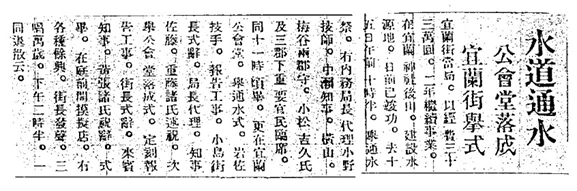 水道通水
公會堂落成
宜蘭街舉式
宜蘭街當局。以經費三十
三萬圓。二年繼續事業。
在宜蘭神社後山。建設水
源地。日前已竣功。去十
五日午前十時半。舉通水
祭。有內務局長代理小野
技師。中瀨知事。橫山。
梅谷兩郡守。小松吉久氏
及三郡下重要官民臨席。
同十一時頃畢。更在宜蘭
公會堂。舉通水式。岩佐
技手。報告工事。小島街
長式辭。局長代理。知事
佐藤。重藤諸氏述祝。次
舉公會堂落成式。定刻報
告工事。街長式辭。來賓
知事。黃張諸氏祝辭。式
畢。在庭前開摸擬店。有
各種餘興。街長發聲。三
唱萬歲。下午二時半。一
同歡散云。